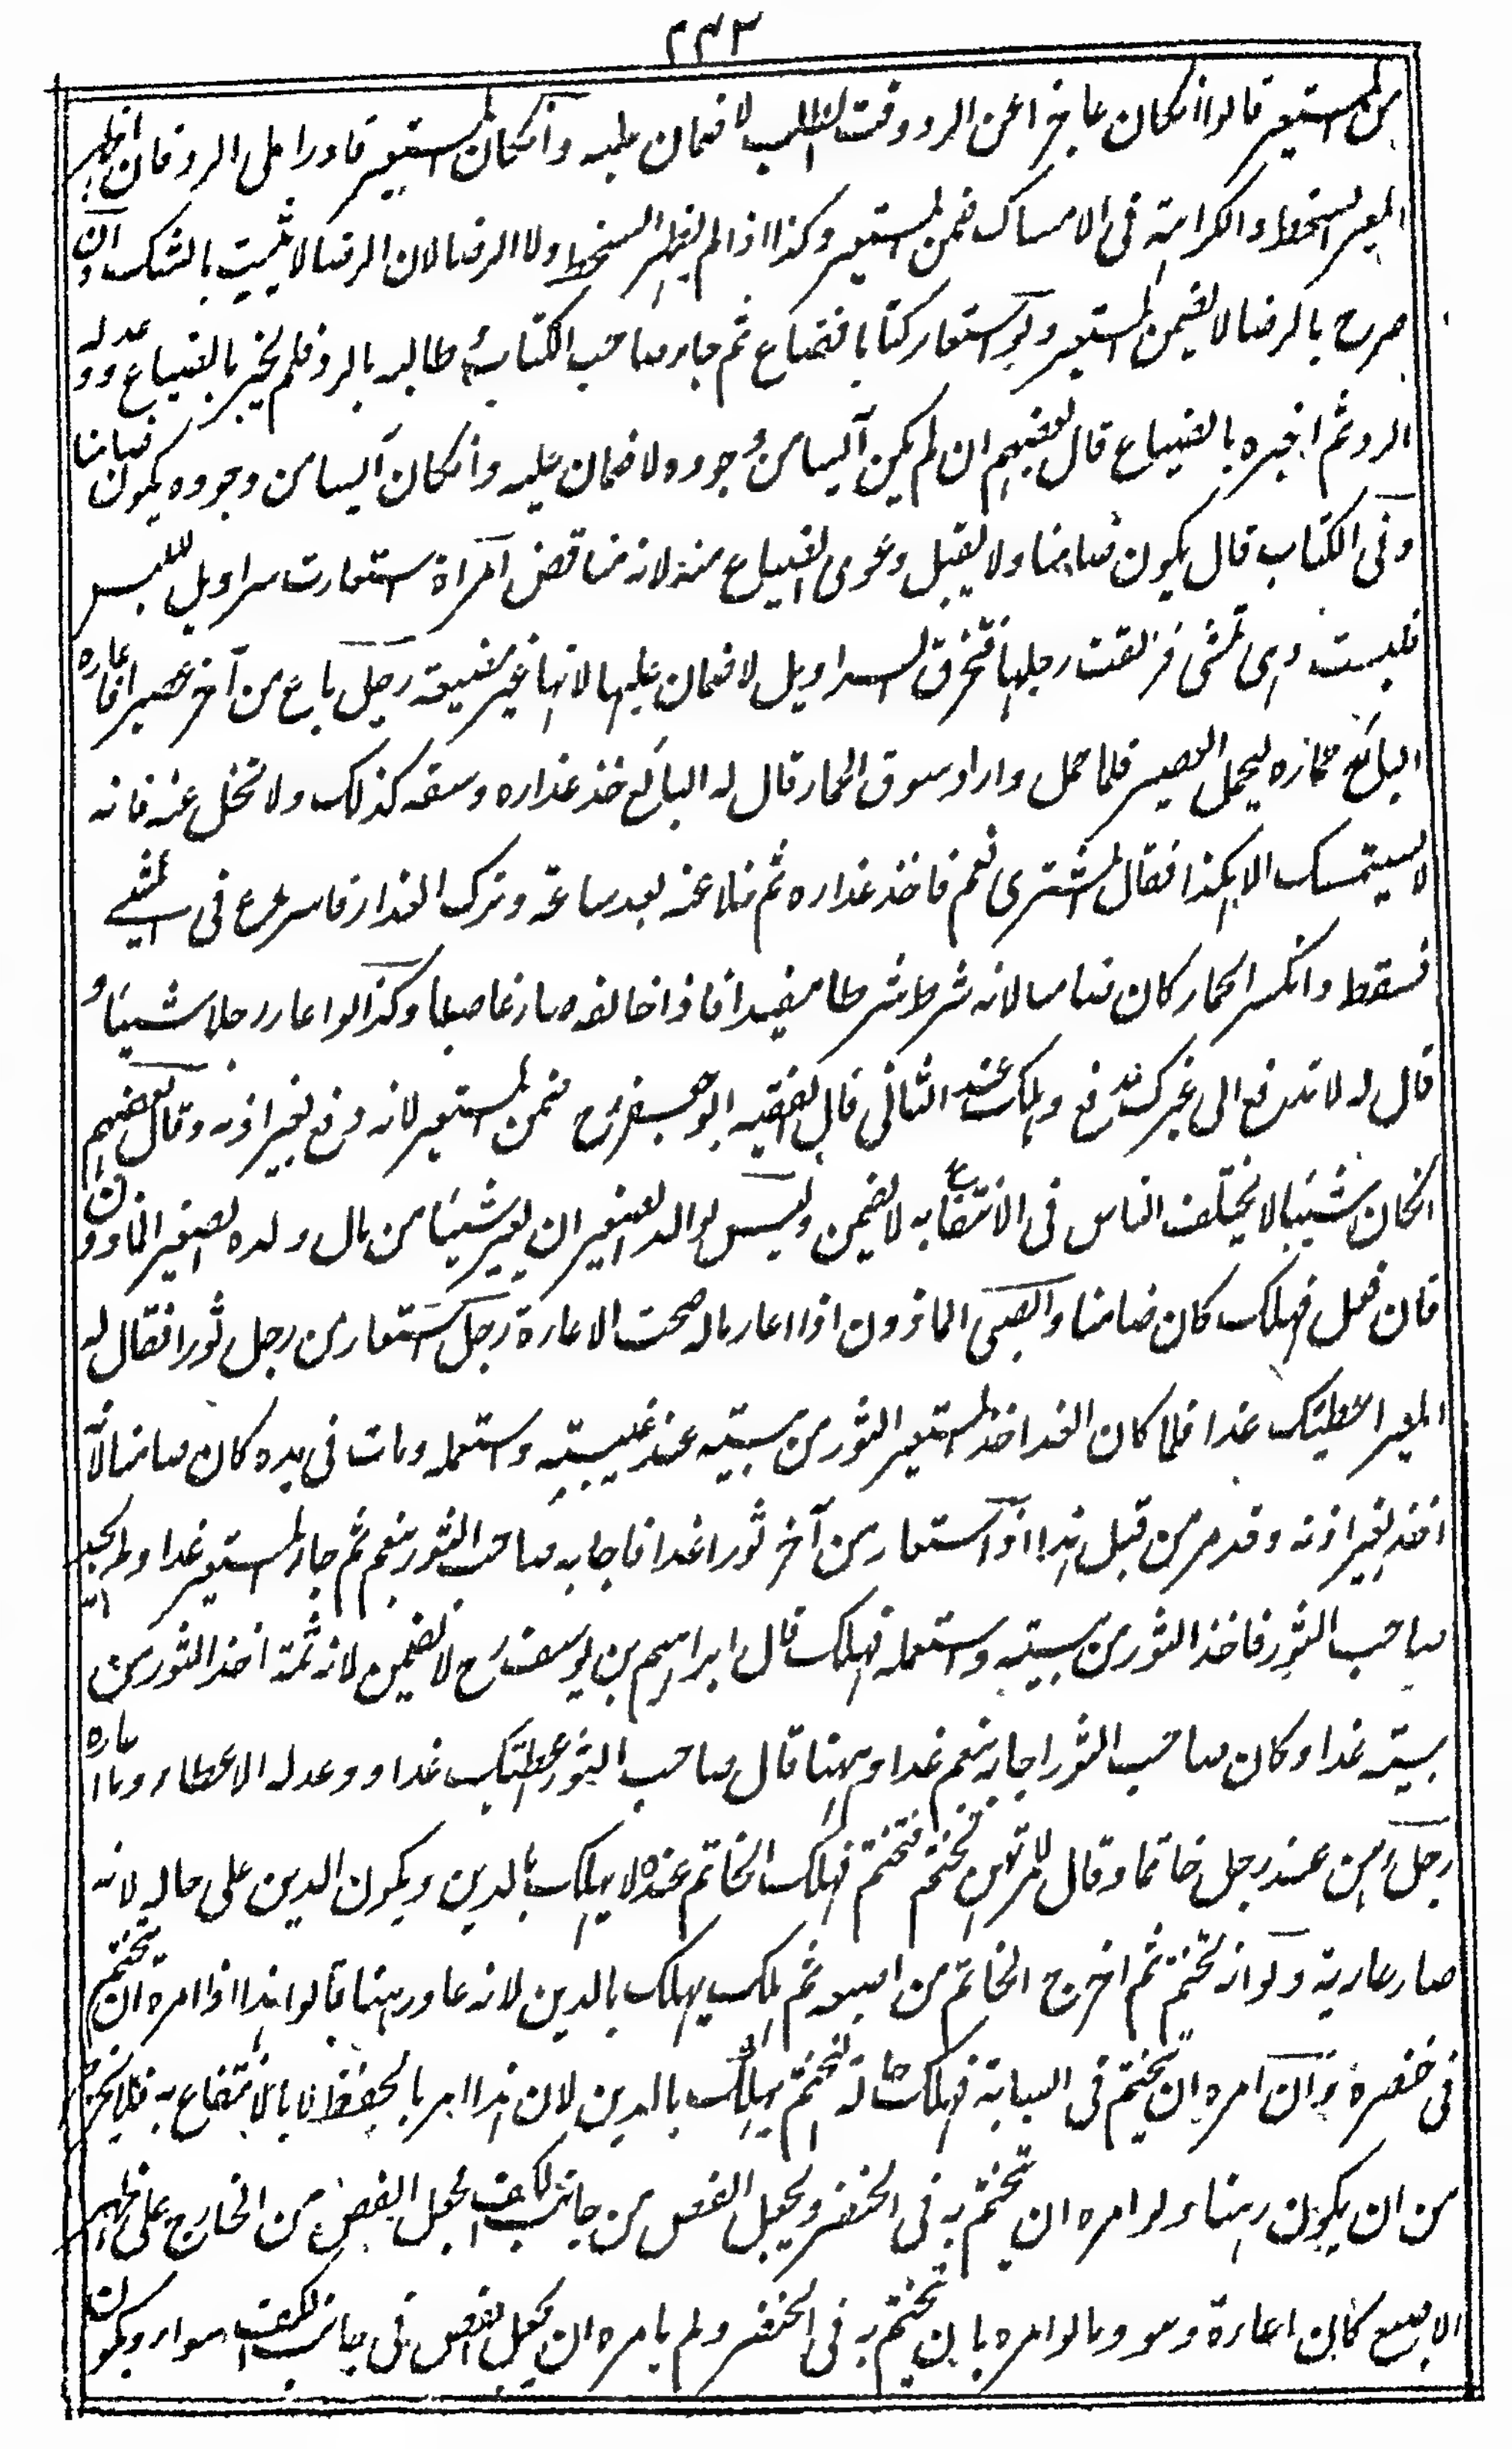 ٢٤٣
من المستعير قالوا انكان عاجزا عن الرد وقت الطلب لا ضمان عليه وانكان المستعير قادرا على الرد فان اظهر
المعير السخط والكراهة فى الامساك ضمن المستعير وكذا اذا لم يظهر السخط ولا الرضا لان الرضا لا يثبت بالشك وان
صرح بالرضا لا يضمن المستعير ولو استعار كتابا فضاع ثم جاء صاحب الكتاب وطالبه بالرد فلم يخبر بالضياع ووعد له
الرد ثم اخبره بالضياع قال بعضهم ان لم يكن آيسا من وجوده لا ضمان عليه وانكان آيسا من وجوده يكون ضامنا
وفى الكتاب قال يكون ضامنا ولا يقبل دعوى الضياع منه لانه مناقض امرأة استعارت سراويل للبس
فلبست وهى تمشى فزلقت رجلها فتخرق السراويل لا ضمان عليها لانها غير مضيعة رجل باع من آخر عصيرا فاعاره
البائع حماره ليحمل العصير فلما حمل واراد سوق الحمار قال له البائع خذ عذاره وسقه كذلك ولا تخل عنه فانه
لا يستمسك الا بكذا فقال المشترى نعم فاخذ عذاره ثم خلا عنه بعد ساعة وترك العذار فاسرع فى المشى
فسقط وانكسر الحمار كان ضامنا لانه شرط شرطا مفيدا فاذا خالفه صار غاصبا وكذا لو اعار رجلا شيئا و
قال له لا تدفع الى غيرك فدفع وهلك عند الثانى قال الفقيه ابو جعفر رح ضمن المستعير لانه دفع بغير اذنه وقال بعضهم
انكان شيئا لا يختلف الناس فى الانتفاع به لا يضمن وليس لوالد الصغير ان يعير شيئا من مال ولده الصغير الماذون
فان فعل فهلك كان ضامنا والصبى الماذون اذا اعار ماله صحت الاعارة رجل استعار من رجل ثورا فقال له
المعير اعطيتك غدا فلما كان الغد اخذ المستعير الثور من بيته عند غيبته واستعمله ومات فى يده كان ضامنا لانه
اخذ بغير اذنه وقد مر من قبل هذا اذا استعار من آخر ثورا غدا فاجابه صاحب الثور بنعم ثم جاء المستعير غدا ولم يجد
صاحب الثور فاخذ الثور من بيته واستعمله فهلك قال ابراهيم بن يوسف رح لا يضمن لانه ثمة اخذ الثور من
بيته غدا وكان صاحب الثور اجابه بنعم غدا وههنا قال صاحب الثور اعطيتك غدا ووعد له الاعطاء وما اعاره
رجل رهن عند رجل خاتما وقال للمرتهن تختم فتختم فهلك الخاتم عنده لا يهلك بالدين ويكون الدين على حاله لانه
صار عارية ولو انه تختم ثم اخرج الخاتم من اصبعه ثم هلك يهلك بالدين لانه عاد رهنا قالوا هذا اذا امره ان يتختم
فى خنصره فان امره ان يتختم فى السبابة فهلك حالة التختم يهلك بالدين لان هذا امر بالحفظ لا بالانتفاع به فلا يخرج
من ان يكون رهنا ولو امره ان يتختم به فى الخنصر ويجعل الفص من جانب الكف فجعل الفص من الخارج على ظهر
الاصبع كان اعارة وهو وما لو امره بان يتختم به فى الخنصر ولم يامره ان يجعل الفص فى جانب الكف سواء ويكون